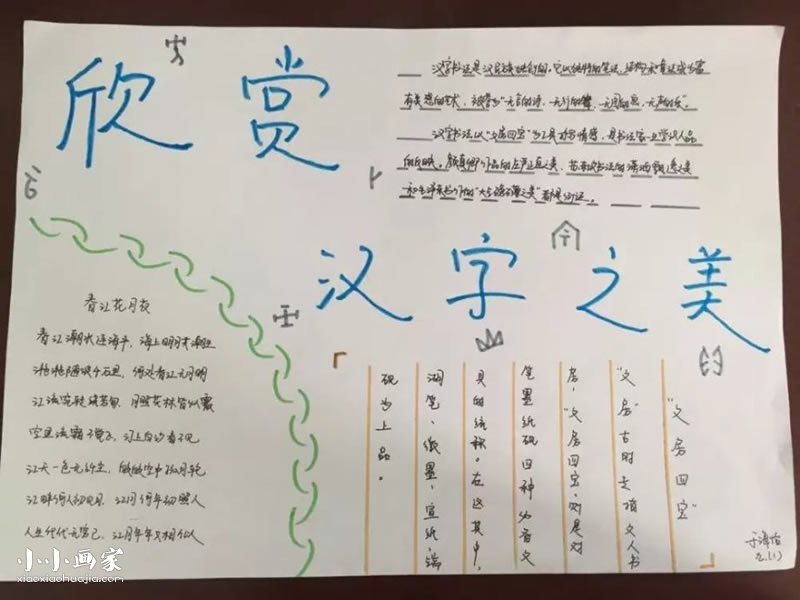 欣赏
汉字书法是汉民族独创的。它以独特的笔法、结构和章法成为富
有美感的艺术，被誉为“无言的诗，无行的舞，无图的画，无声的乐”。
汉字书法以“文房四宝”为工具抒写情感，是书法家
汉字之美
春江花月夜
春江潮水连海平，海上明月共潮生
滟滟随波千万里，何处春江无月明
江流宛转绕芳甸，月照花林皆似霰
空里流霜不觉飞，汀上白沙看不见
江天一色无纤尘，皎皎空中孤月轮
江畔何人初见月，江月何年初照人
人生代代无穷已，江月年年只相似
“文房四宝”
“文房”古时是指文人书
房，“文房四宝，则是对
笔墨纸砚四种为古文
具的统称。在这其中，
湖笔、徽墨、宣纸、端
砚为上品。
小小画家
xiaoxiaohuajia.com